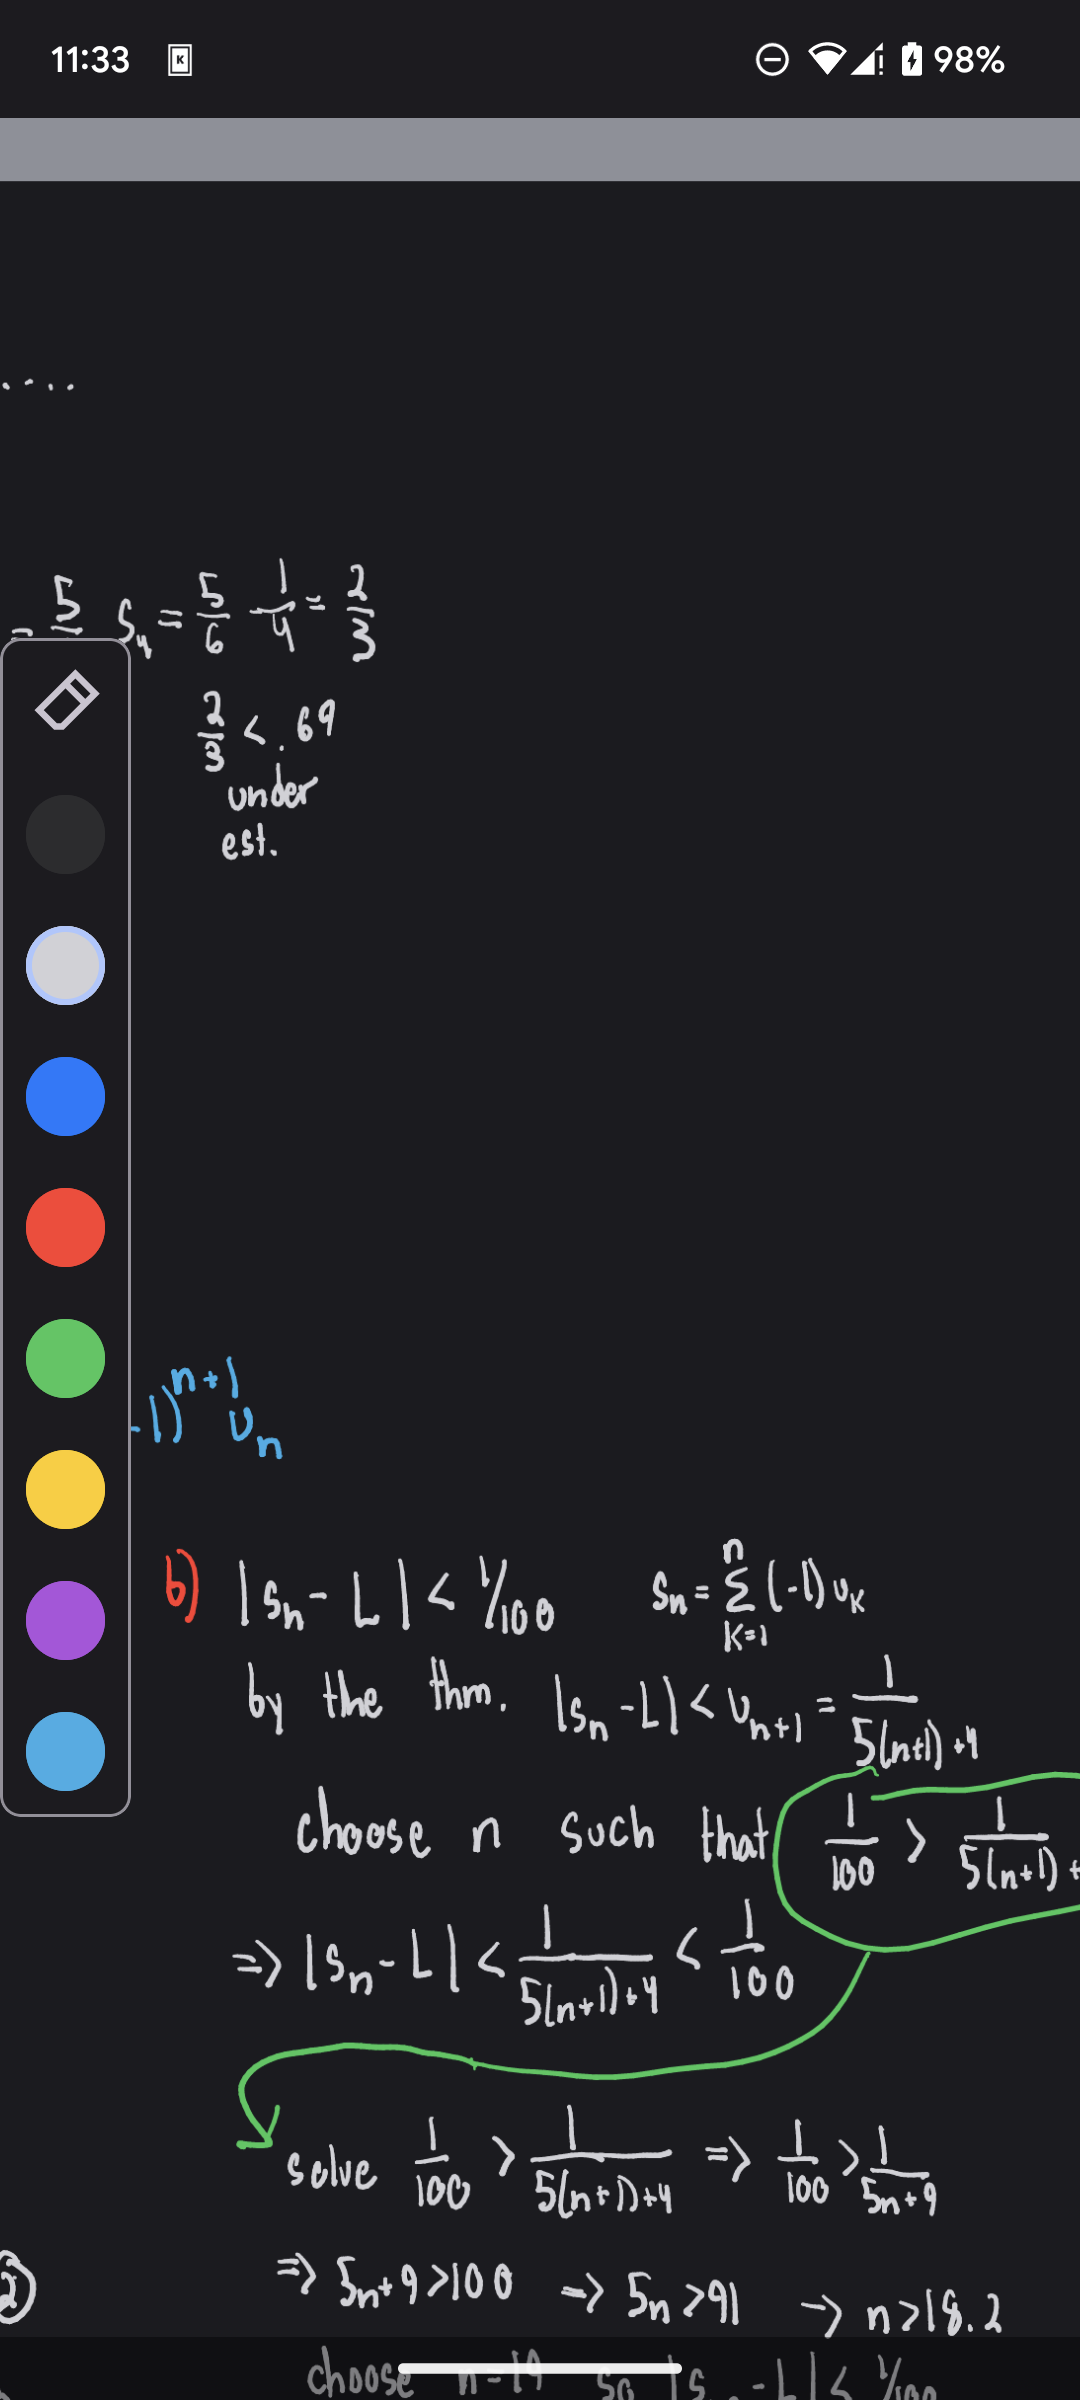 11:33 K 98%
....
= 5 S₄ = 5/6 - 1/4 = 2/3
2/3 < .69
under
est.
-1)ⁿ⁺¹ uₙ
b) |sₙ - L| < 1/100 sₙ = Σₖ₌₁ⁿ (-1) uₖ
by the thm. |sₙ - L| < uₙ₊₁ = 1/(5(n+1)+4)
choose n such that 1/100 > 1/(5(n+1)+
=> |sₙ - L| < 1/(5(n+1)+4) < 1/100
solve 1/100 > 1/(5(n+1)+4) => 1/100 > 1/(5n+9)
=> 5n+9 > 100 => 5n > 91 -> n > 18.2
2
choose n=19 so |s - L| < 1/100